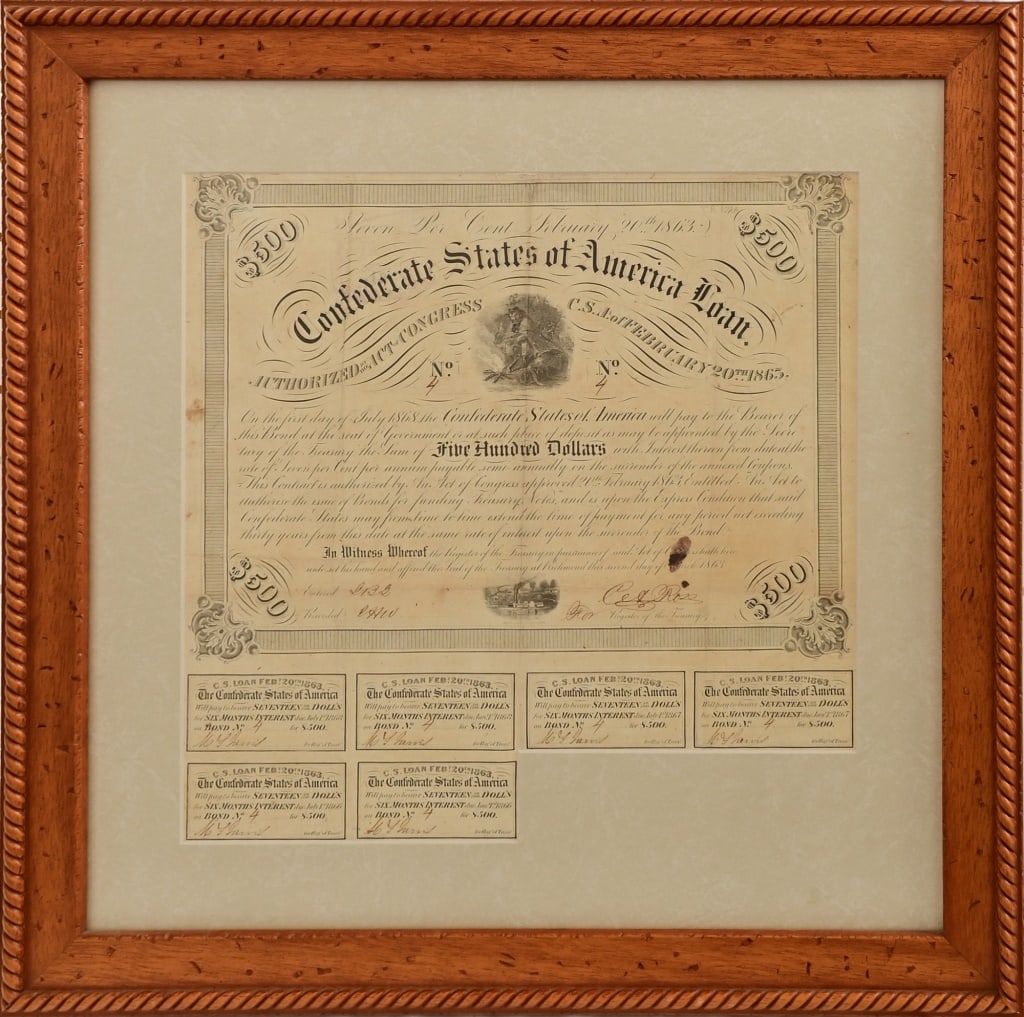 Seven Per Cent February 20th 1863.
$500
$500
Confederate States of America Loan.
AUTHORIZED BY ACT OF CONGRESS C.S.A. of FEBRUARY 20TH 1863.
No. 4
No. 4
On the first day of July 1868, the Confederate States of America will pay to the Bearer of
this Bond at the seat of Government or at such place of deposit as may be appointed by the Secre
tary of the Treasury the Sum of Five Hundred Dollars with Interest thereon from date at the
rate of Seven per Cent per annum payable semi-annually on the surrender of the annexed Coupons.
This Contract is authorized by An Act of Congress approved 20th February 1863 Entitled "An Act to
authorize the issue of Bonds for funding Treasury Notes," and is upon the Express Condition that said
Confederate States may from time to time extend the time of payment for any period not exceeding
thirty years from this date at the same rate of interest upon the surrender of the Bond
In Witness Whereof the Register of the Treasury in pursuance of said Act of hath here
unto set his hand and affixed the Seal of the Treasury at Richmond this second day of 1863
$500
$500
Entered
Recorded
For Register of the Treasury.
C.S. LOAN FEBY. 20TH 1863.
The Confederate States of America
Will pay to bearer SEVENTEEN DOLLS
for SIX MONTHS INTEREST due July 1st 1868
on BOND No 4 for $500.
for Reg'r of Treas'y
C.S. LOAN FEBY. 20TH 1863.
The Confederate States of America
Will pay to bearer SEVENTEEN DOLLS
for SIX MONTHS INTEREST due Jany 1st
on BOND No 4 for $500.
for Reg'r of Treas'y
C.S. LOAN FEBY. 20TH 1863.
The Confederate States of America
Will pay to bearer SEVENTEEN DOLLS
for SIX MONTHS INTEREST due July 1st 1867
on BOND No 4 for $500.
for Reg'r of Treas'y
C.S. LOAN FEBY. 20TH 1863.
The Confederate States of America
Will pay to bearer SEVENTEEN DOLLS
for SIX MONTHS INTEREST due Jany 1st 1867
on BOND No 4 for $500.
for Reg'r of Treas'y
C.S. LOAN FEBY. 20TH 1863.
The Confederate States of America
Will pay to bearer SEVENTEEN DOLLS
for SIX MONTHS INTEREST due July 1st 1866
on BOND No 4 for $500.
for Reg'r of Treas'y
C.S. LOAN FEBY. 20TH 1863.
The Confederate States of America
Will pay to bearer SEVENTEEN DOLLS
for SIX MONTHS INTEREST due Jany 1st 1866
on BOND No 4 for $500.
for Reg'r of Treas'y